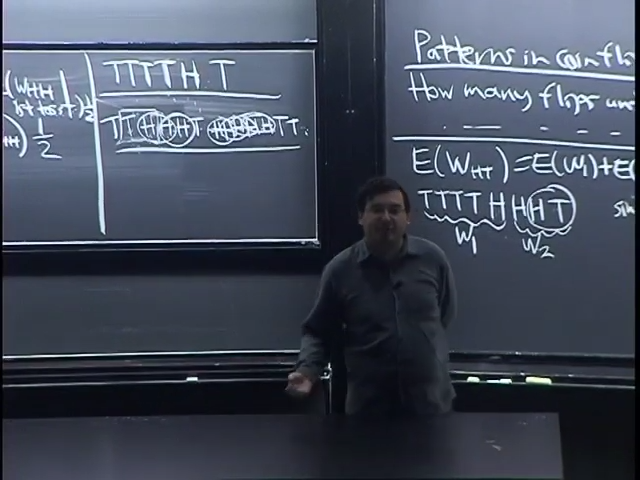 (W HH | 1st toss T) 1/2
HH) 1/2
TTTTH T
TTHHHT HHHHTT.
Patterns in coin fli
How many flips un
E(W HT) = E(W1) + E(
TTTTHHHT
W1 W2